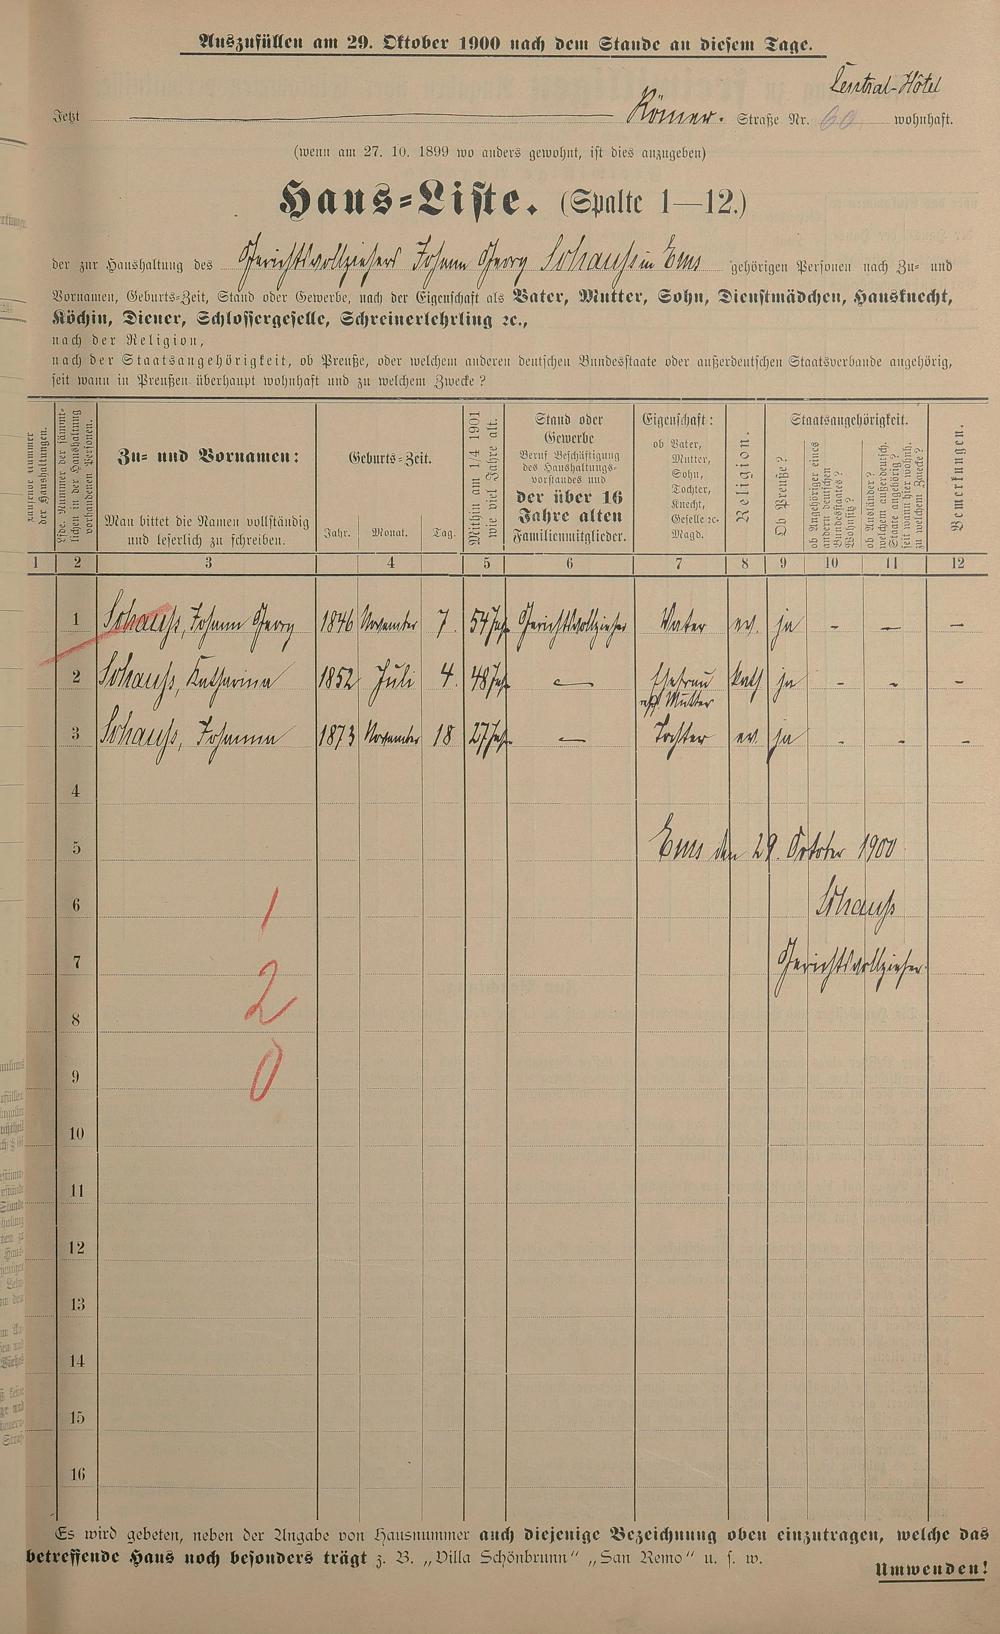 Auszufüllen am 29. Oktober 1900 nach dem Stande an diesem Tage.
Central-Hôtel
Jetzt Römer. Straße Nr. 60 wohnhaft.
(wenn am 27. 10. 1899 wo anders gewohnt, ist dies anzugeben)
Haus-Liste. (Spalte 1—12.)
der zur Haushaltung des Gerichtsvollziehers Johann Georg Schauss in Ems gehörigen Personen nach Zu- und
Vornamen, Geburts-Zeit, Stand oder Gewerbe, nach der Eigenschaft als Vater, Mutter, Sohn, Dienstmädchen, Hausknecht,
Köchin, Diener, Schlossergeselle, Schreinerlehrling ꝛc.,
nach der Religion,
nach der Staatsangehörigkeit, ob Preuße, oder welchem anderen deutschen Bundesstaate oder außerdeutschen Staatsverbande angehörig,
seit wann in Preußen überhaupt wohnhaft und zu welchem Zwecke?
Laufende Nummer
der Haushaltungen.
Lfde. Nummer der sämmt-
lichen in der Haushaltung
vorhandenen Personen.
Zu- und Vornamen:
Man bittet die Namen vollständig
und leserlich zu schreiben.
Geburts-Zeit.
Jahr. Monat. Tag.
Mithin am 1/4 1901
wie viel Jahre alt.
Stand oder
Gewerbe
Beruf Beschäftigung
des Haushaltungs-
vorstandes und
der über 16
Jahre alten
Familienmitglieder.
Eigenschaft:
ob Vater,
Mutter,
Sohn,
Tochter,
Knecht,
Geselle ꝛc.
Magd.
Religion.
Staatsangehörigkeit.
Ob Preuße?
ob Angehöriger eines
andern deutschen
Bundesstaates?
Wohnsitz?
ob Ausländer?
welchem außerdeutsch.
Staate angehörig?
seit wann hier wohnh.
zu welchem Zwecke?
Bemerkungen.
1 2 3 4 5 6 7 8 9 10 11 12
1 Schauss, Johann Georg 1846 November 7. 54 Jah. Gerichtsvollzieher Vater ev. ja - - -
2 Schauss, Katharina 1852 Juli 4. 48 Jah. — Ehefrau kath ja - - -
Mutter
3 Schauss, Johanna 1873 November 18 27 Jah. — Tochter ev. ja - - -
4
5 Ems den 29. October 1900
6 Schauss
1
7 Gerichtsvollzieher.
2
8
9
0
10
11
12
13
14
15
16
Es wird gebeten, neben der Angabe von Hausnummer auch diejenige Bezeichnung oben einzutragen, welche das
betreffende Haus noch besonders trägt z. B. „Villa Schönbrunn“ „San Remo“ u. s. w.
Umwenden!